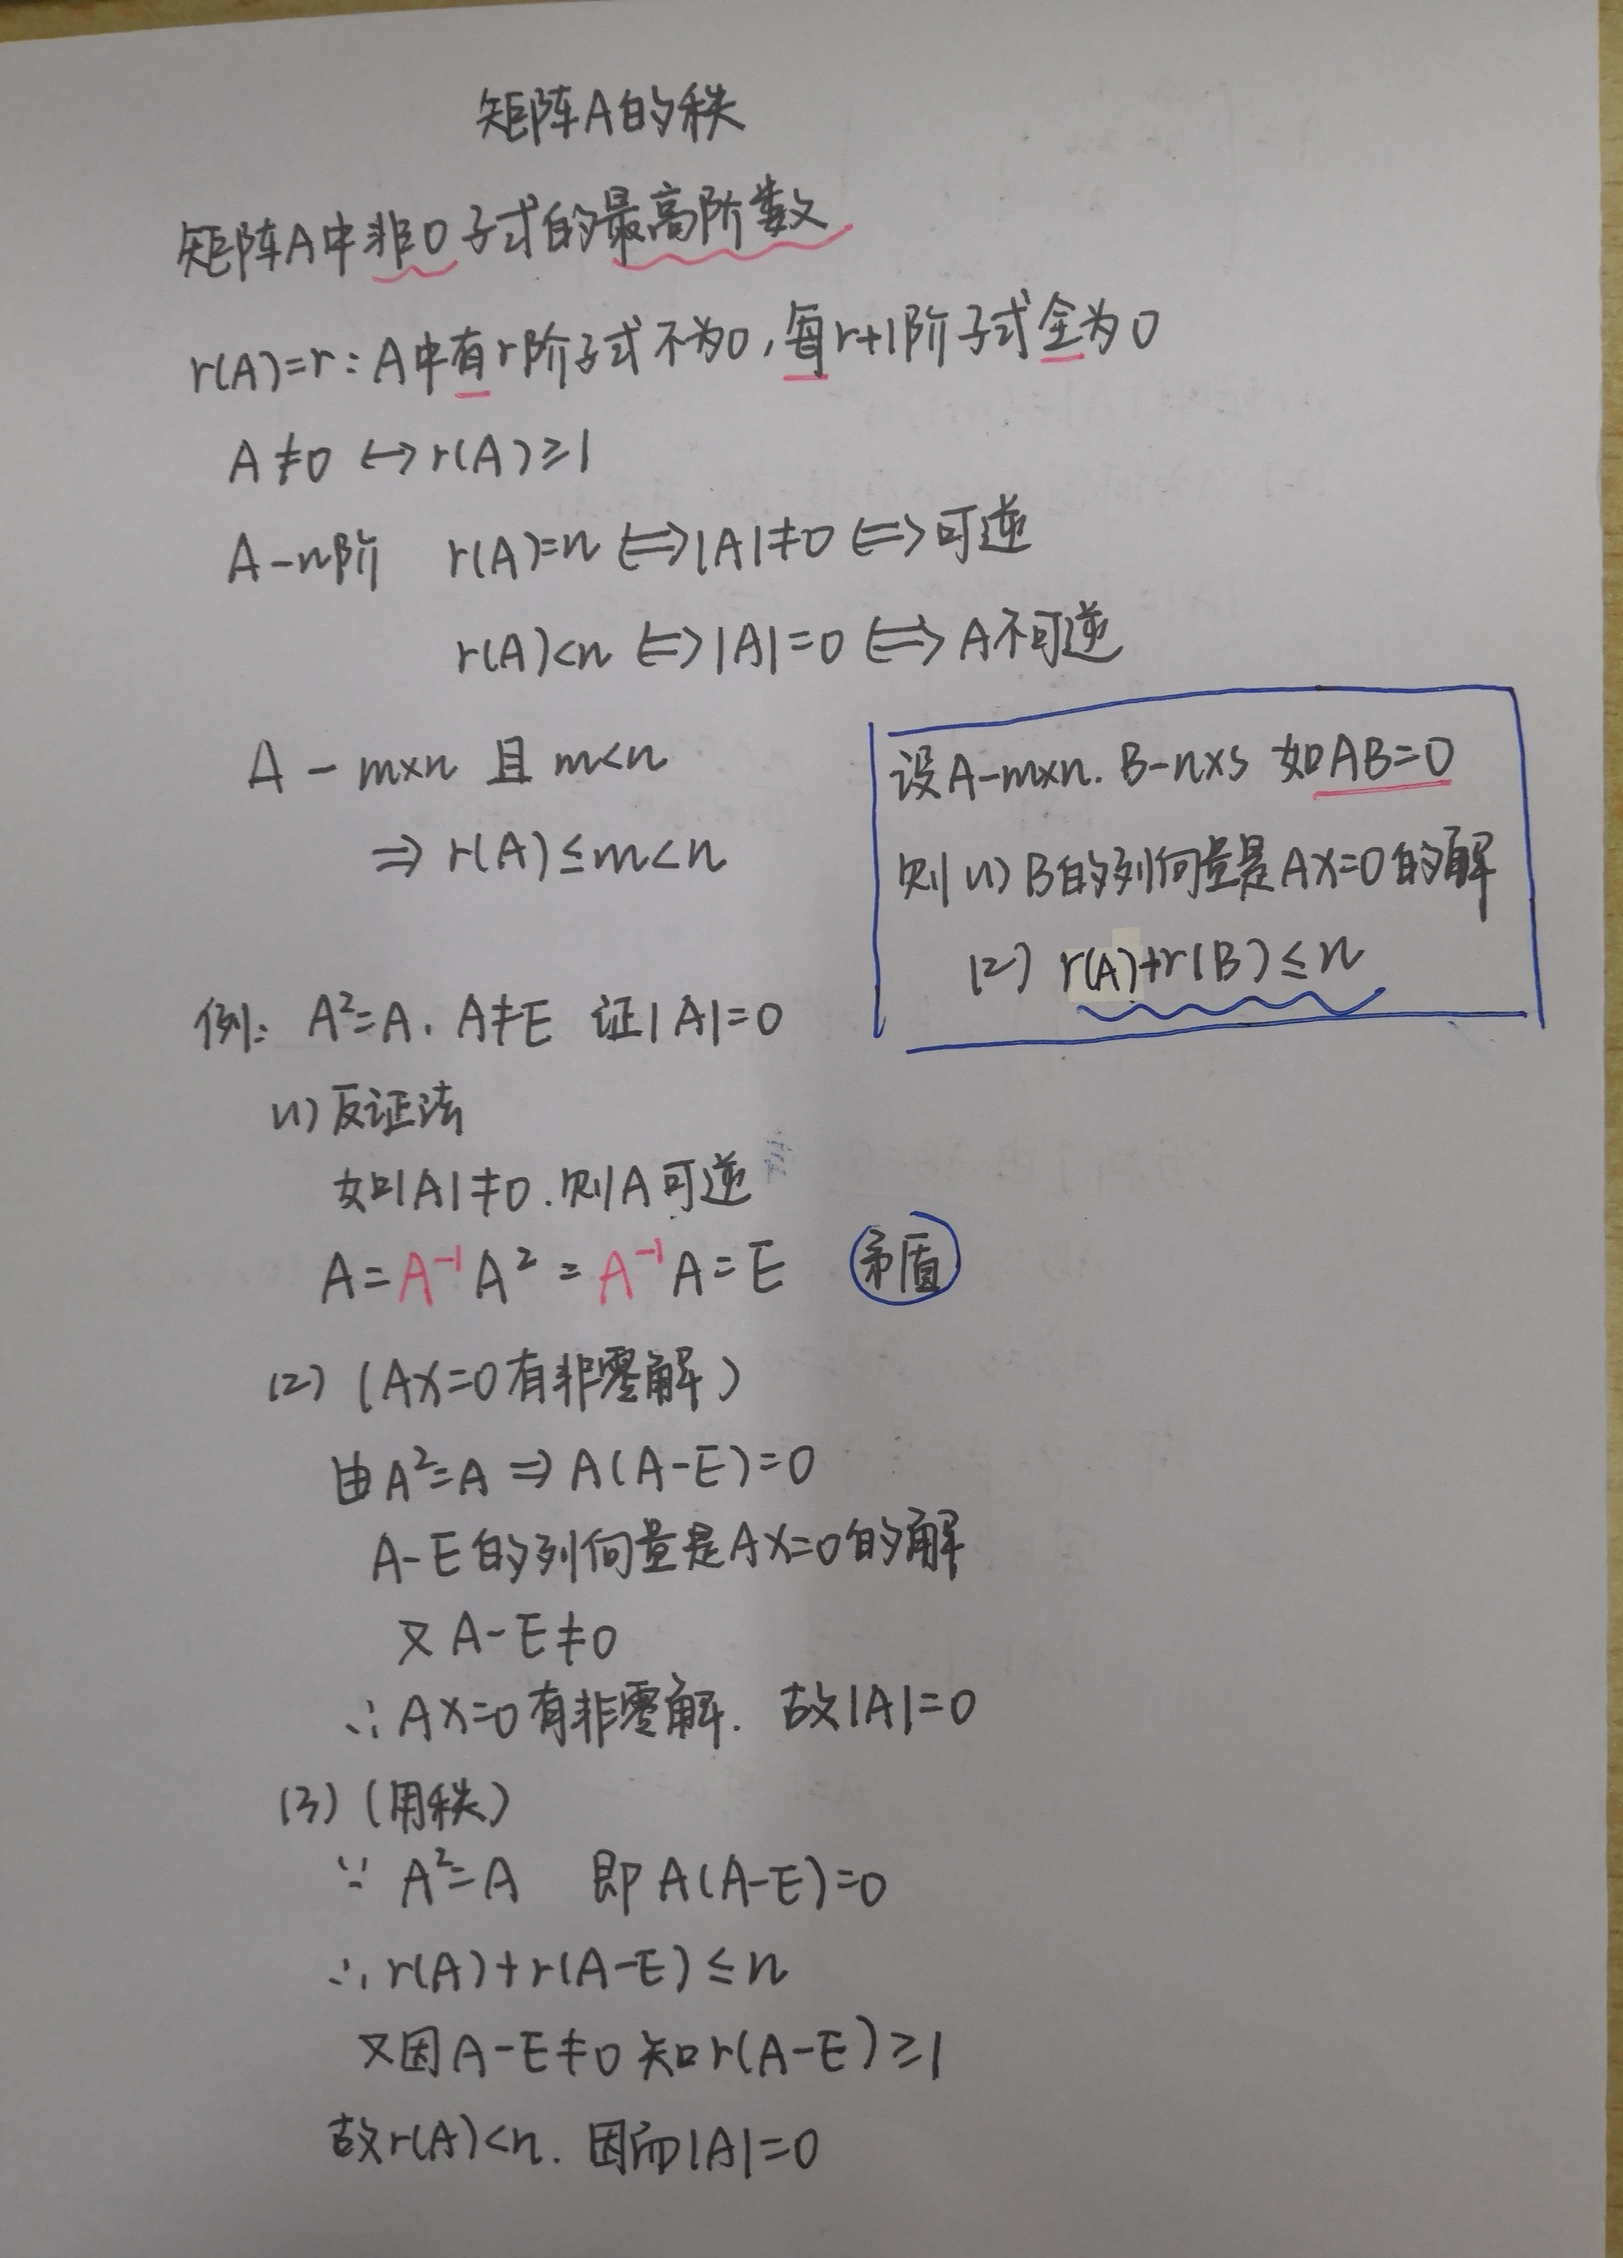 矩阵A的秩
矩阵A中非0子式的最高阶数
r(A)=r：A中有r阶子式不为0，每r+1阶子式全为0
A≠0 ↔ r(A)≥1
A-n阶 r(A)=n ⇔ |A|≠0 ⇔ 可逆
r(A)<n ⇔ |A|=0 ⇔ A不可逆
A - m×n 且 m<n
⇒ r(A)≤m<n
设A-m×n. B-n×s 如AB=0
则 (1) B的列向量是AX=0的解
(2) r(A)+r(B)≤n
例: A²=A. A≠E 证|A|=0
(1) 反证法
如|A|≠0.则A可逆
A=A⁻¹A²=A⁻¹A=E 矛盾
(2) (AX=0有非零解)
由A²=A ⇒ A(A-E)=0
A-E的列向量是AX=0的解
又 A-E≠0
∴AX=0有非零解. 故|A|=0
(3) (用秩)
∵ A²=A 即 A(A-E)=0
∴r(A)+r(A-E)≤n
又因A-E≠0知r(A-E)≥1
故r(A)<n. 因而|A|=0